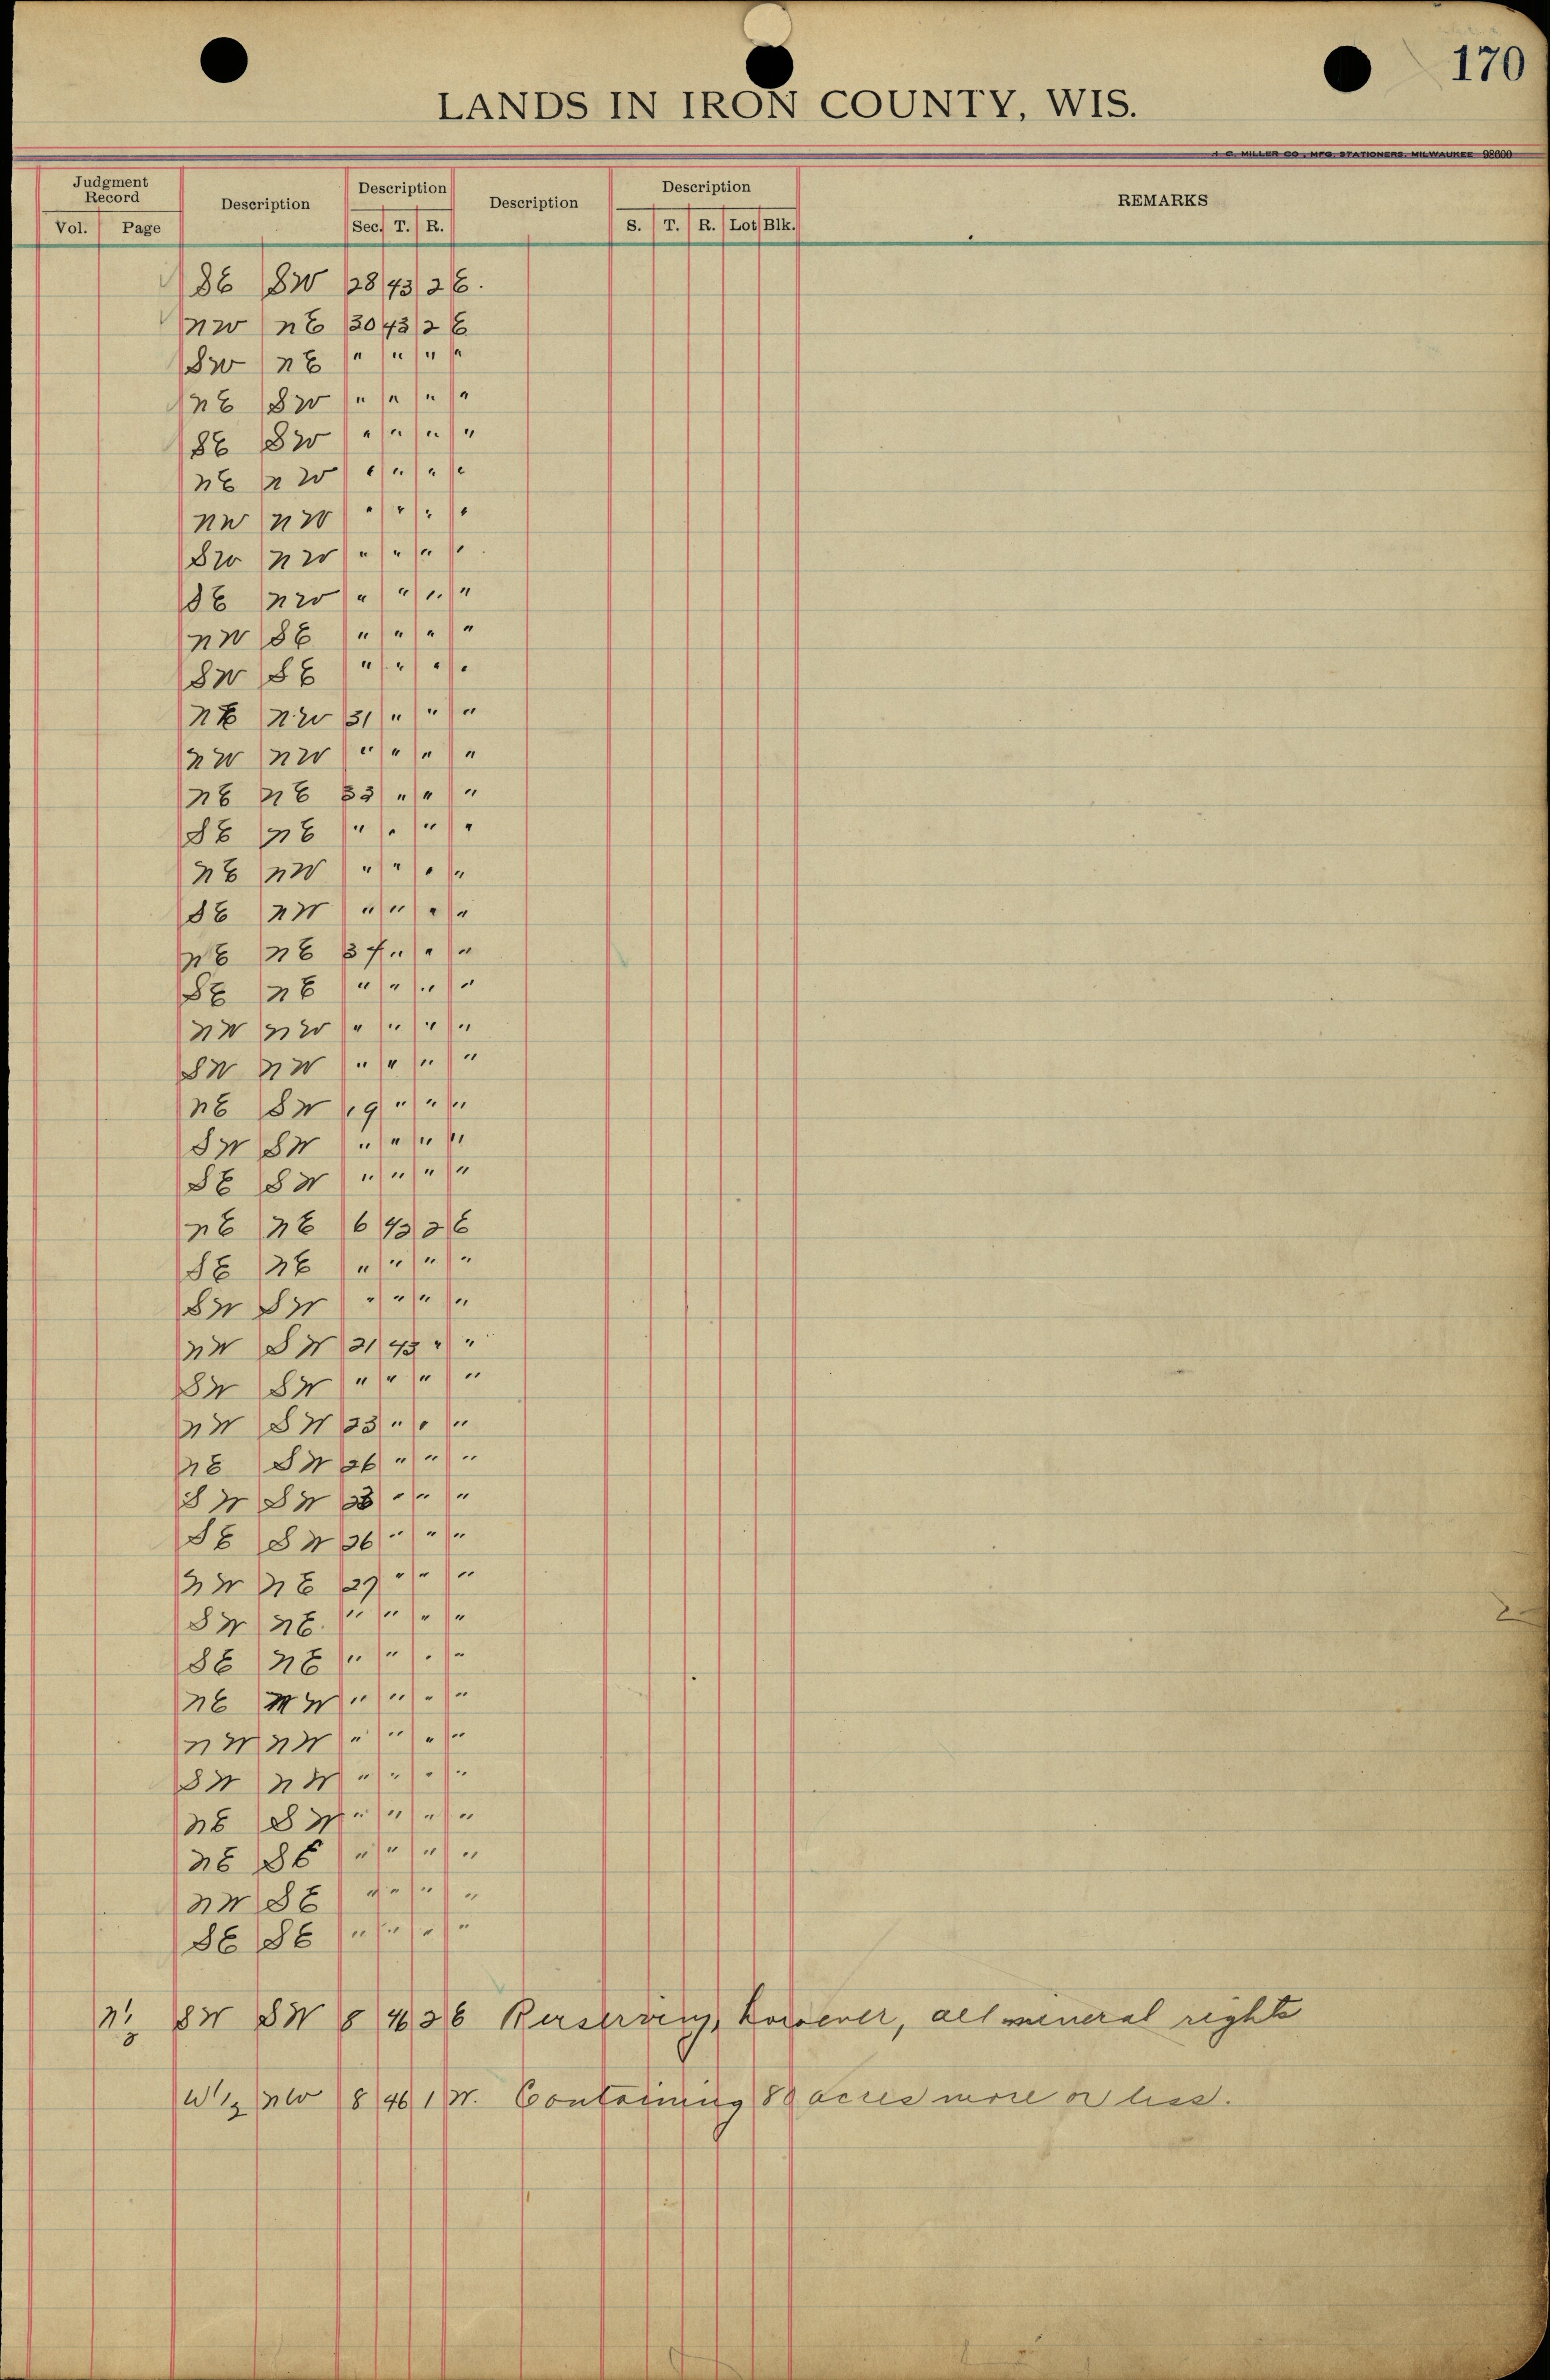 170
LANDS IN IRON COUNTY, WIS.
H. C. MILLER CO., MFG. STATIONERS, MILWAUKEE 98600
Judgment Record Description Description Description Description REMARKS
Vol. Page Sec. T. R. S. T. R. Lot Blk.
SE SW 28 43 2 E.
NW NE 30 43 2 E
SW NE " " " "
NE SW " " " "
SE SW " " " "
NE NW " " " "
NW NW " " " "
SW NW " " " "
SE NW " " " "
NW SE " " " "
SW SE " " " "
NE NW 31 " " "
NW NW " " " "
NE NE 33 " " "
SE NE " " " "
NE NW " " " "
SE NW " " " "
NE NE 34 " " "
SE NE " " " "
NW NW " " " "
SW NW " " " "
NE SW 19 " " "
SW SW " " " "
SE SW " " " "
NE NE 6 43 2 E
SE NE " " " "
SW SW " " " "
NW SW 21 43 " "
SW SW " " " "
NW SW 23 " " "
NE SW 26 " " "
SW SW " " "
SE SW 26 " " "
NW NE 27 " " "
SW NE. " " " "
SE NE " " " "
NE NW " " " "
NW NW " " " "
SW NW " " " "
NE SW " " " "
NE SE " " " "
NW SE " " " "
SE SE " " " "
N½ SW SW 8 46 2 E Reserving, however, all mineral rights
W½ NW 8 46 1 W. Containing 80 acres more or less.